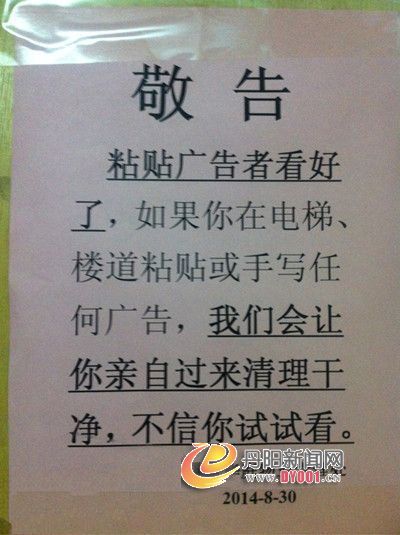 敬 告
粘贴广告者看好
了，如果你在电梯、
楼道粘贴或手写任
何广告，我们会让
你亲自过来清理干
净，不信你试试看。
丹阳新闻网
WWW.DY001.CN
2014-8-30